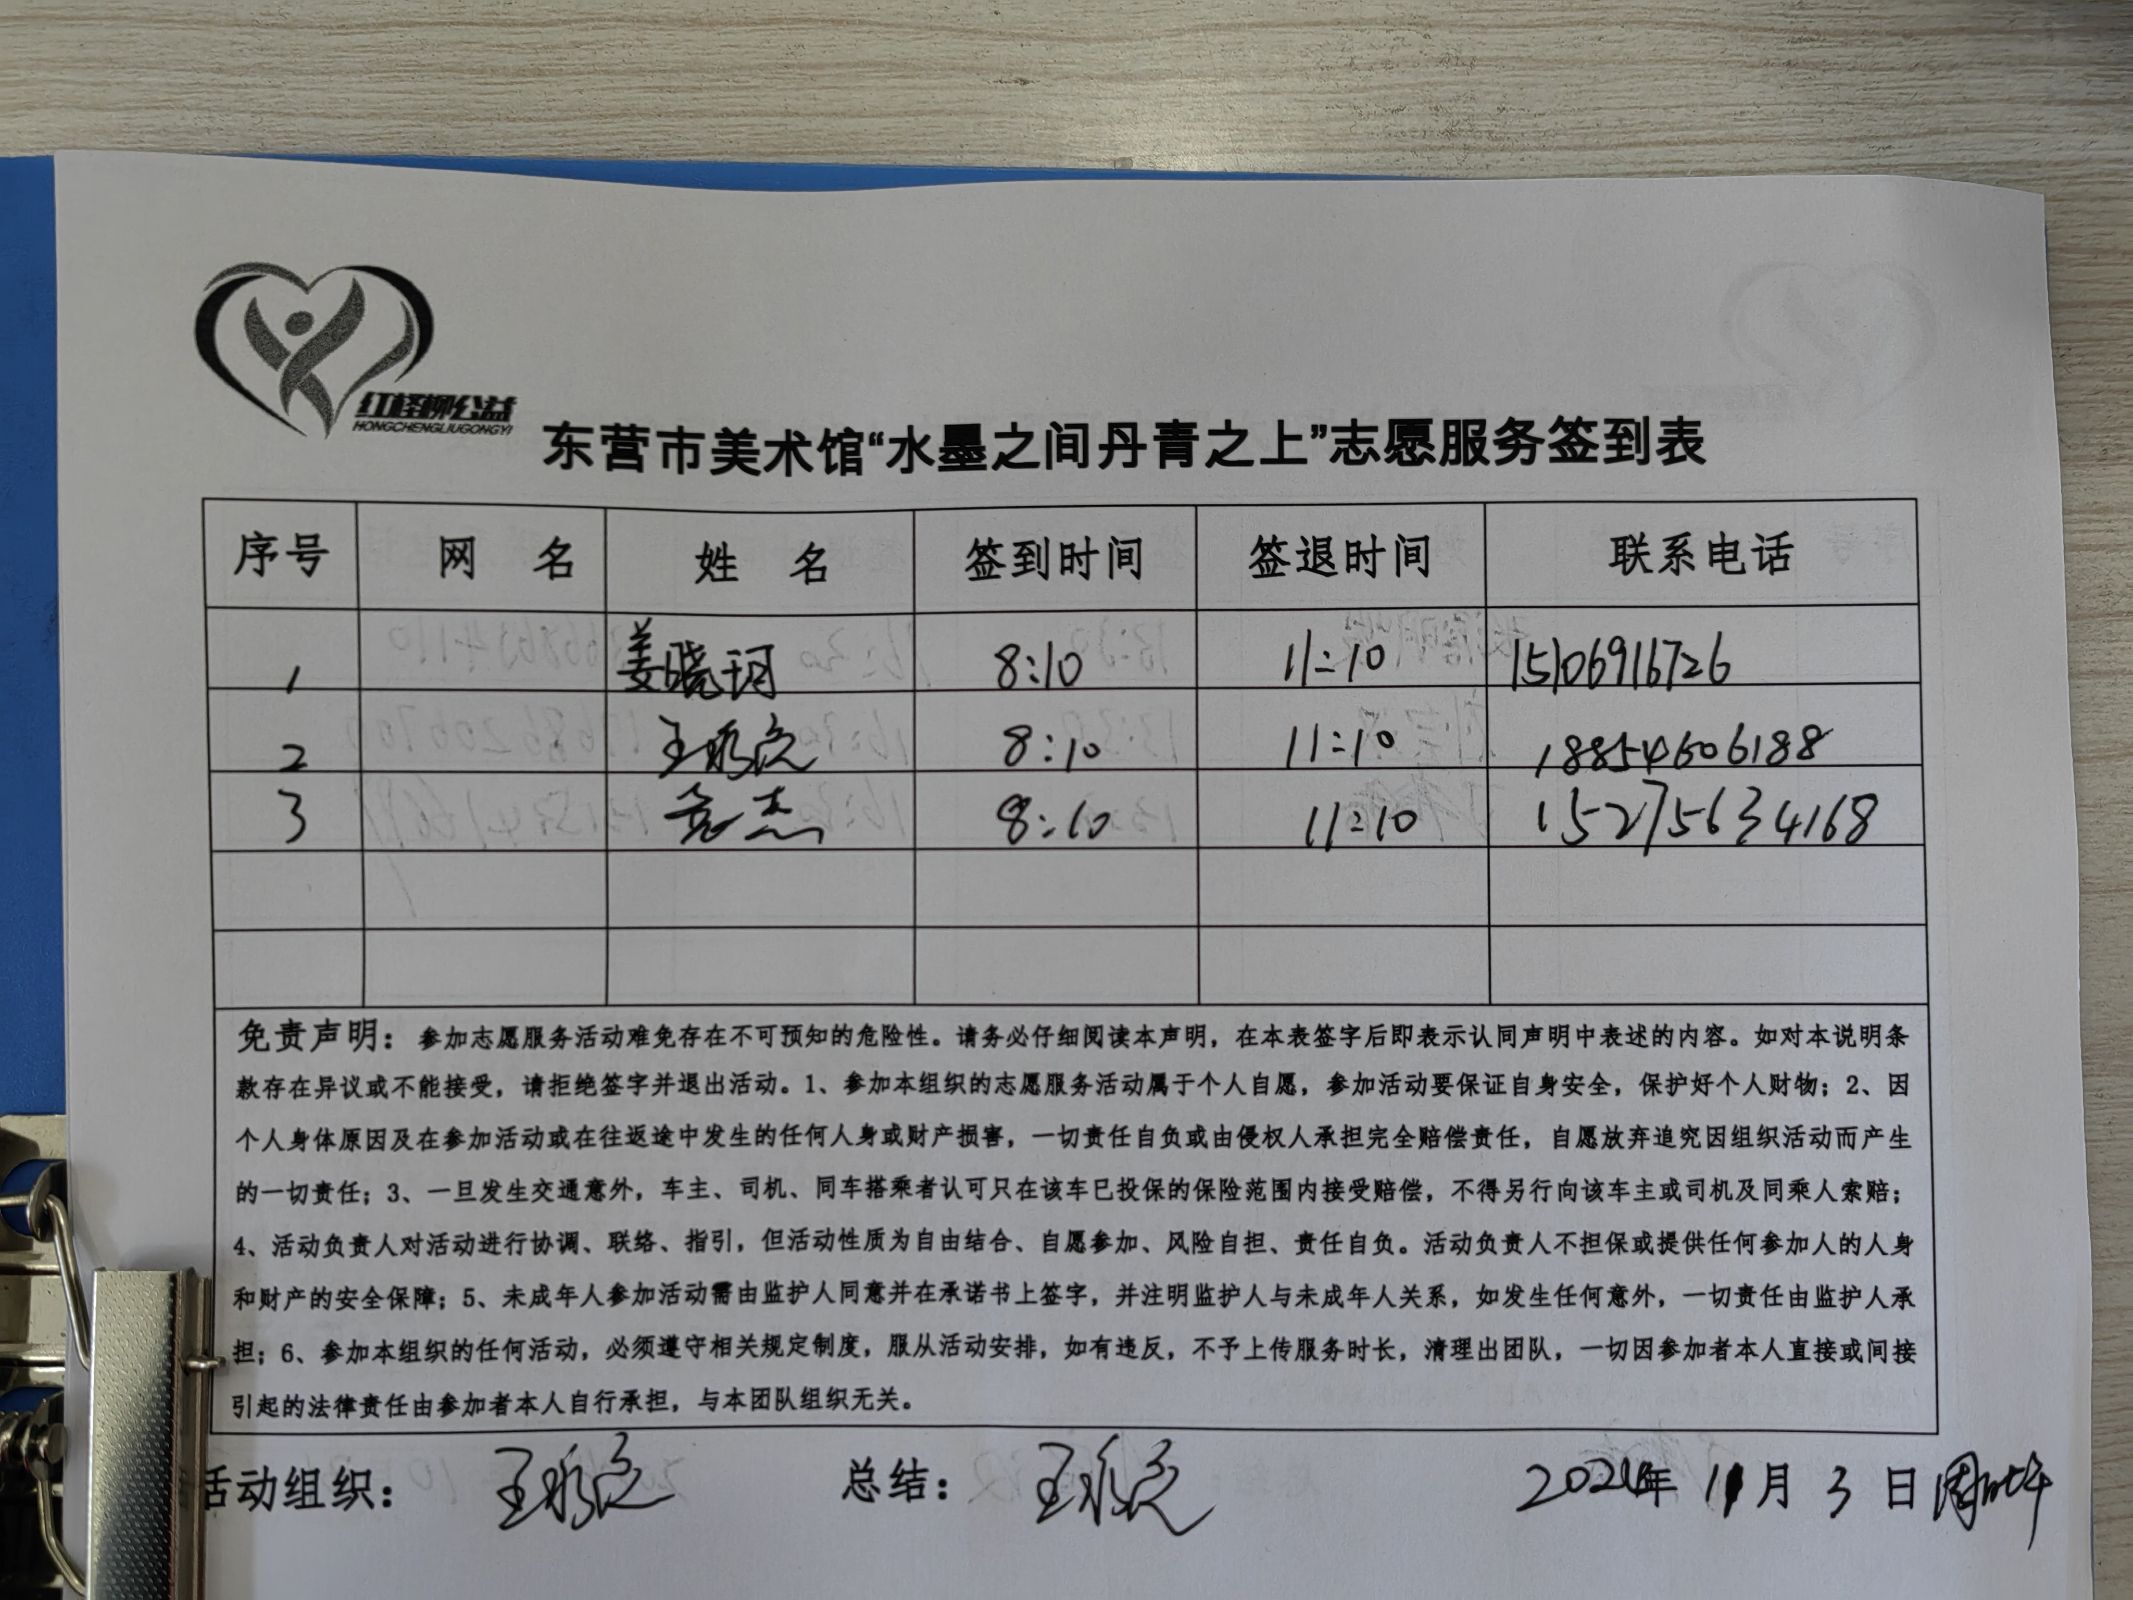 红柽柳公益
HONGCHENGLIUGONGYI
东营市美术馆“水墨之间丹青之上”志愿服务签到表
序号 网 名 姓 名 签到时间 签退时间 联系电话
1 姜晓珂 8:10 11:10 15106916726
2 8:10 11:10 18854606188
3 8:10 11:10 15275634168
免责声明：参加志愿服务活动难免存在不可预知的危险性。请务必仔细阅读本声明，在本表签字后即表示认同声明中表述的内容。如对本说明条
款存在异议或不能接受，请拒绝签字并退出活动。1、参加本组织的志愿服务活动属于个人自愿，参加活动要保证自身安全，保护好个人财物；2、因
个人身体原因及在参加活动或在往返途中发生的任何人身或财产损害，一切责任自负或由侵权人承担完全赔偿责任，自愿放弃追究因组织活动而产生
的一切责任；3、一旦发生交通意外，车主、司机、同车搭乘者认可只在该车已投保的保险范围内接受赔偿，不得另行向该车主或司机及同乘人索赔；
4、活动负责人对活动进行协调、联络、指引，但活动性质为自由结合、自愿参加、风险自担、责任自负。活动负责人不担保或提供任何参加人的人身
和财产的安全保障；5、未成年人参加活动需由监护人同意并在承诺书上签字，并注明监护人与未成年人关系，如发生任何意外，一切责任由监护人承
担；6、参加本组织的任何活动，必须遵守相关规定制度，服从活动安排，如有违反，不予上传服务时长，清理出团队，一切因参加者本人直接或间接
引起的法律责任由参加者本人自行承担，与本团队组织无关。
活动组织： 总结： 年 11月 3 日